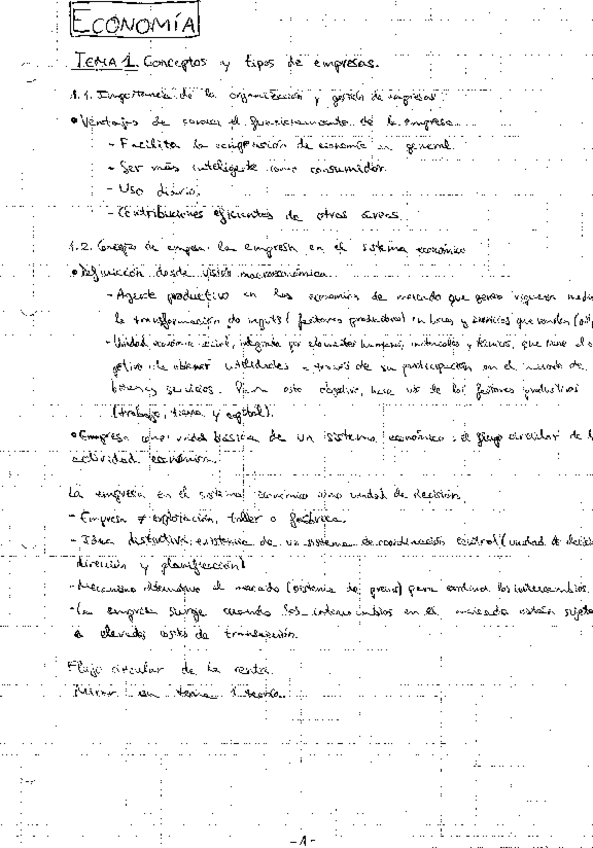 ECONOMÍA
TEMA 1. Conceptos y tipos de empresas.
1.1. Importancia de la organización y gestión de empresas
• Ventajas de conocer el funcionamiento de la empresa
- Facilita la comprensión de economía en general.
- Ser más inteligente como consumidor.
- Uso diario.
- Contribuciones eficientes de otras áreas.
1.2. Concepto de empresa. La empresa en el sistema económico
• Definición desde visión macroeconómica.
- Agente productivo en las economías de mercado que genera riqueza
la transformación de inputs (factores productivos) en bienes y servicios que venden
- Unidad económico social, integrada por elementos humanos, materiales y técnicos, que tiene el
de obtener utilidades a través de su participación en el mercado de
bienes y servicios. Para este objetivo, hace uso de los factores productivos
(trabajo, tierra y capital).
• Empresa como unidad básica de un sistema económico: el flujo circular de
actividad económica.
La empresa en el sistema económico como unidad de decisión.
- Empresa ≠ explotación, taller o fábrica.
- Idea distintiva: existencia de un sistema de coordinación control (unidad de
dirección y planificación)
- Mecanismo alternativo al mercado (sistema de precios) para ordenar los intercambios.
- La empresa surge cuando los intercambios en el mercado están
a elevados costes de transacción.
Flujo circular de la renta.
Mirar en tema 1 teoría.
- 1 -